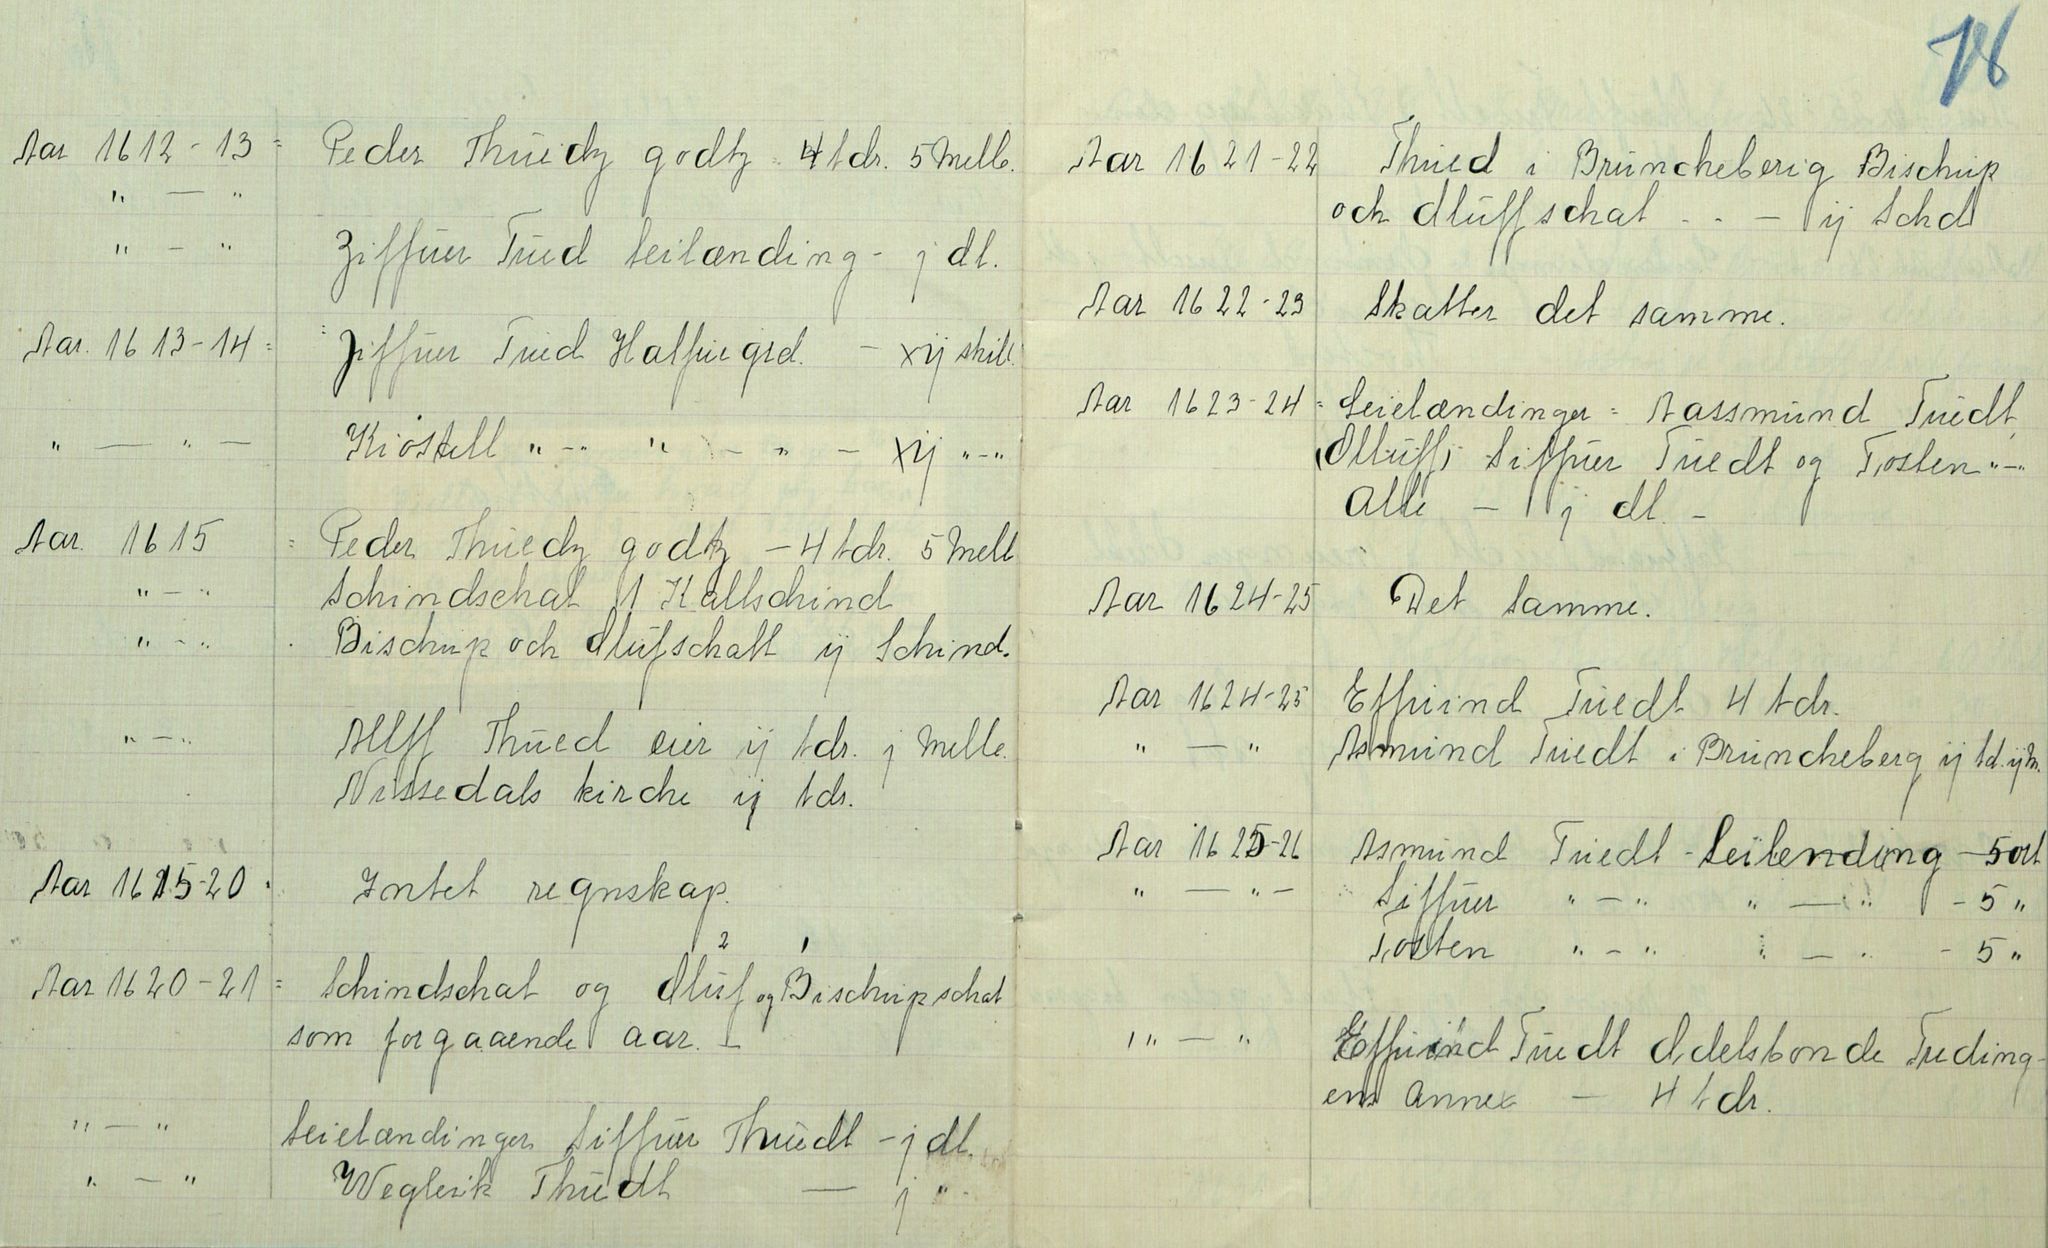 78
Aar 1612-13 = Peder Thuedz godtz = 4 tdr. 5 Melle.
" — "
" - " Ziffuer Tued leilænding - j dl.
Aar. 1613-14 = = Ziffuer Tued Halfuegrd. - xij skill.
" — " — Kiöstell " - " " - " - xij " - "
Aar. 1615 = Peder Thuedz godtz - 4 tdr. 5 Mell
" - " Schindschat 1 Kalfschind
" - " Bischup och Olufschatt ij Schind.
" - " Allff Thued eier ij tdr. j Melle.
Nissedals kirche ij tdr.
Aar 1615-20 Intet regnskap.
2 1
Aar 1620-21 = Schindschat og Oluf og Bischupschat
som forgaaende aar. -
" - " Leielændinger Siffuer Thuedt - j dl.
" - " Weglerik Thuedt — j "
Aar 1621-22 Thued i Bruncheberig Bischup
och Oluffschat . . - ij Schd
Aar 1622-23 Skatter det samme.
Aar 1623-24 = Leielændinger = Aassmund Tuedt,
(Olluff) Siffuer Tuedt og Tosten " - "
Alle - j dl. -
Aar 1624-25 Det samme.
Aar 1624-25 Effuind Tuedt 4 tdr.
" — " Asmund Tuedt i Bruncheberg ij td. ij M.
Aar 1625-26 Asmund Tuedt - Leilending - 5 ort
" — " - Siffuer " - " " — " - 5 "
Tosten " - " " — " - 5 "
" — " Effuind Tuedt Odelsbonde Treding-
ens Annex - 4 tdr.